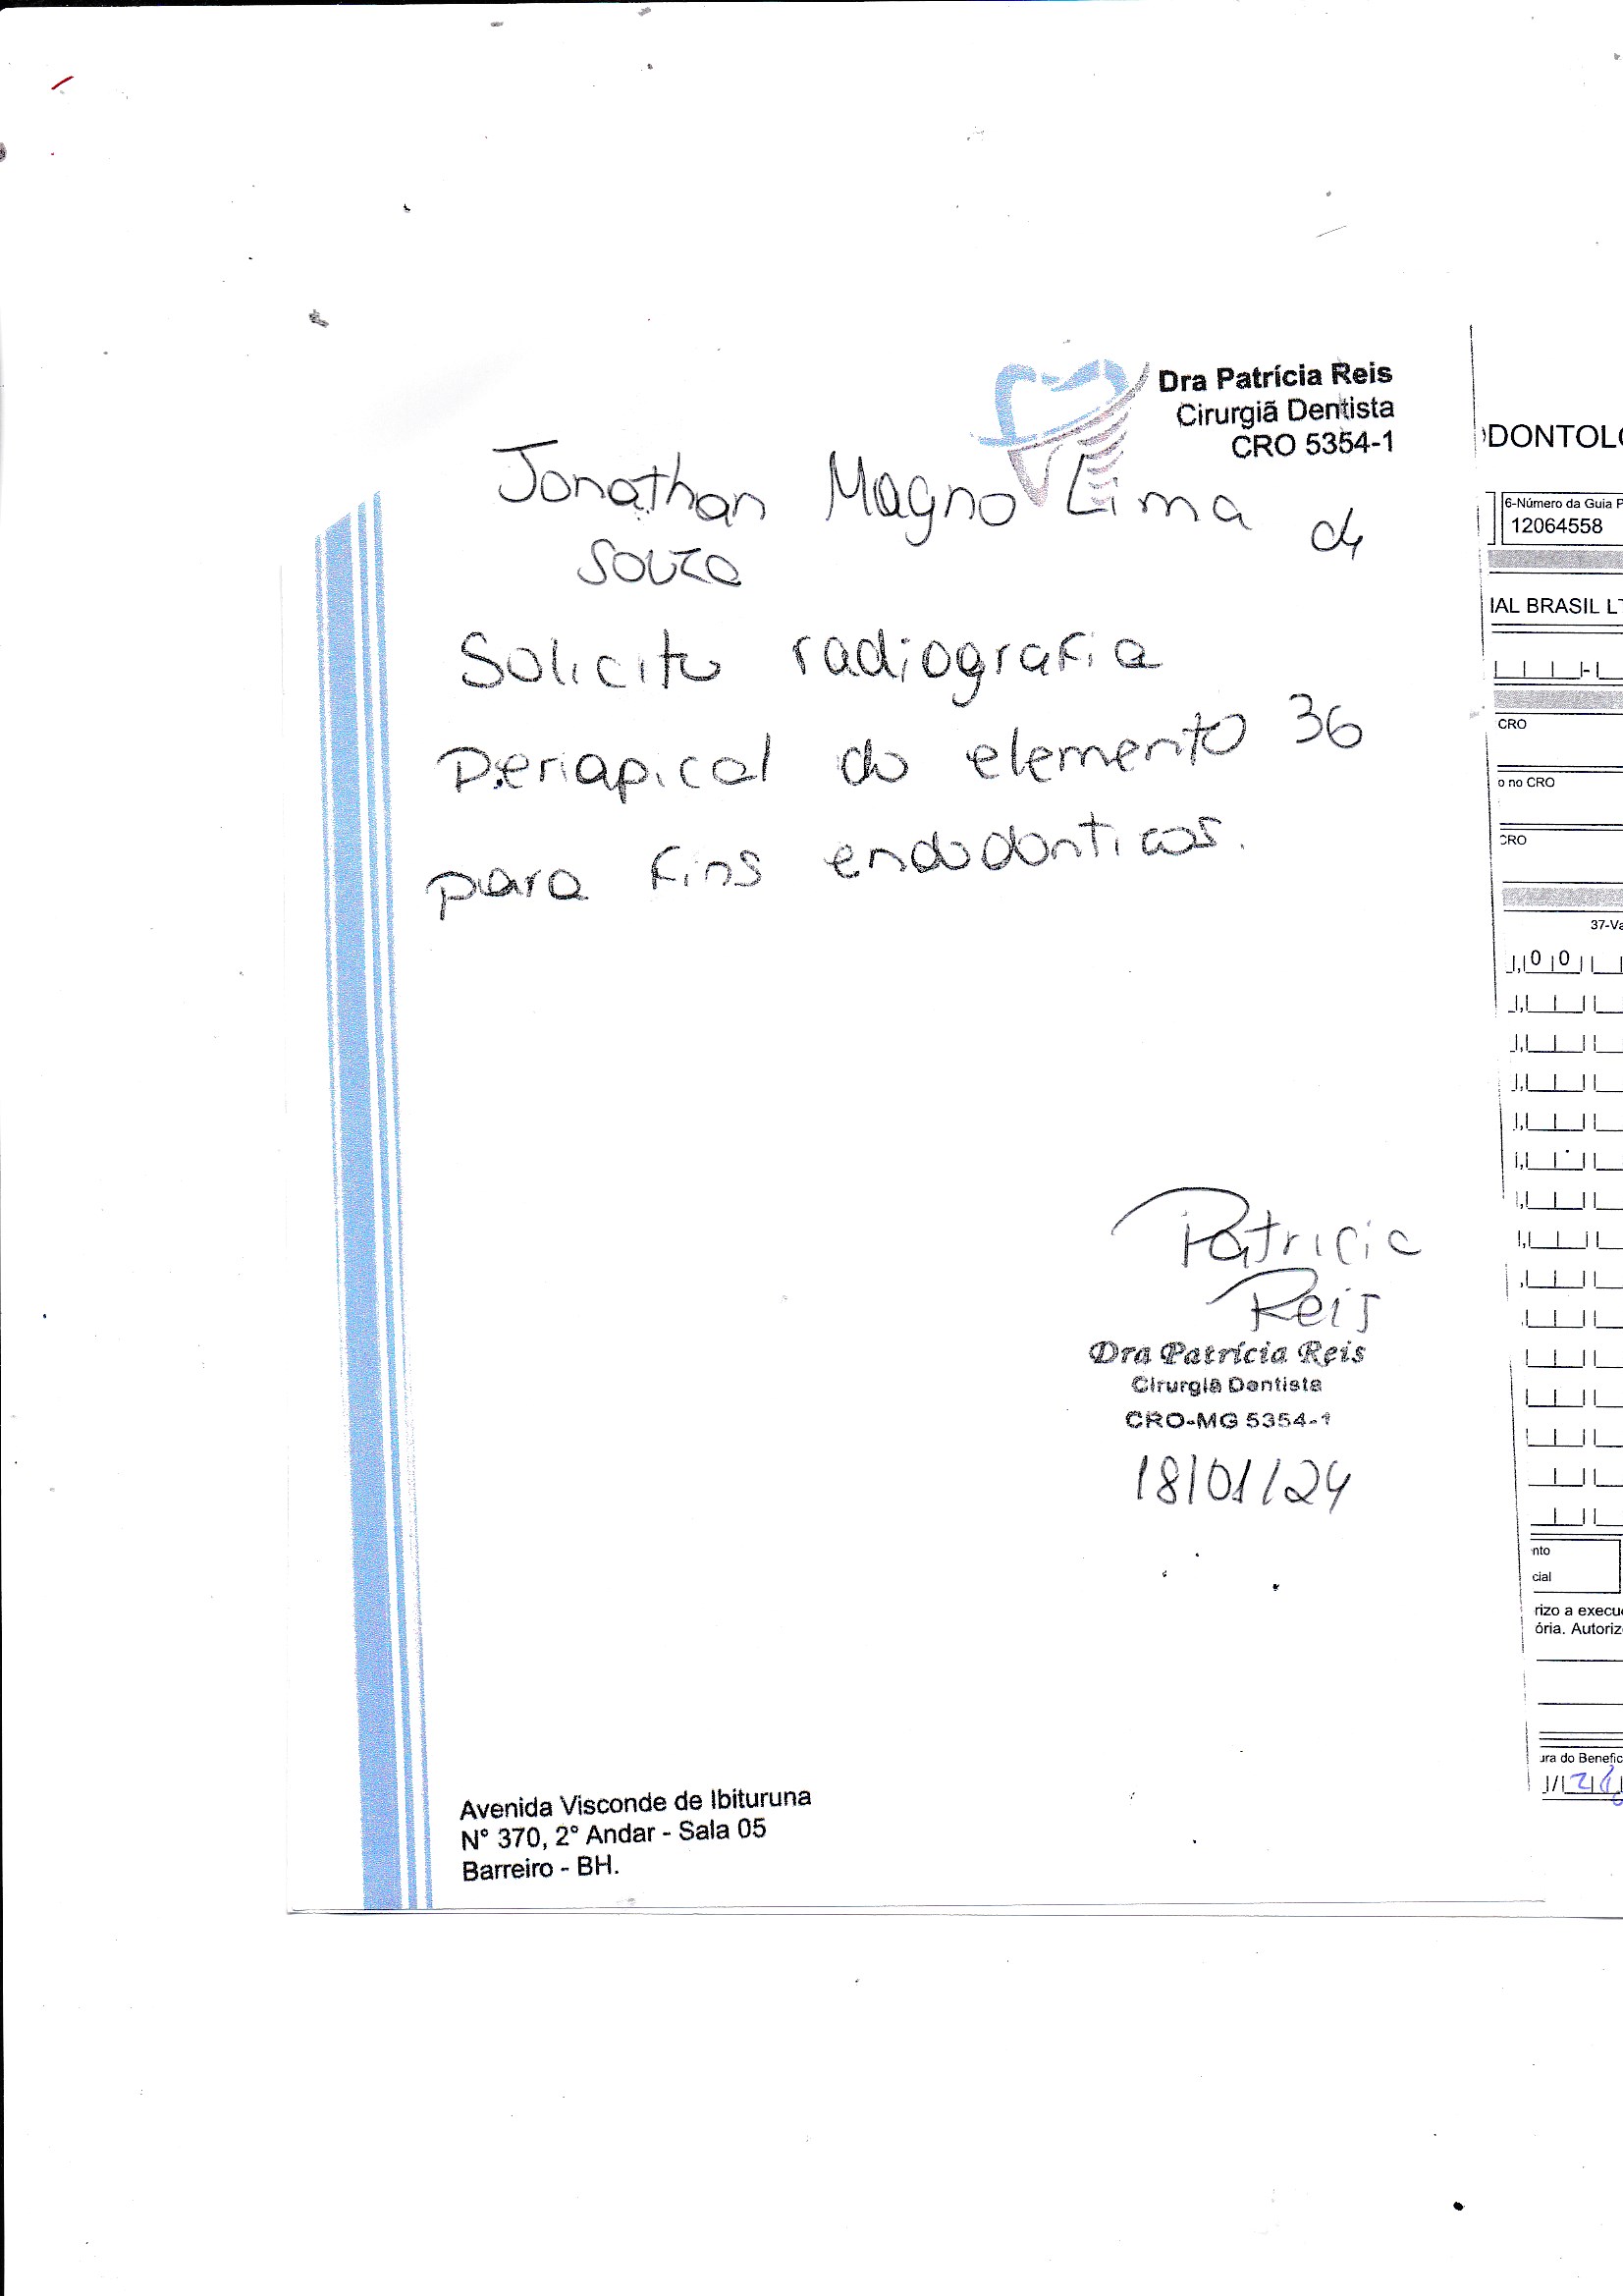 Dra Patrícia Reis
Cirurgiã Dentista
CRO 5354-1
Jonathan Magno Lima de
Souza
Solicito radiografia
Periapical do elemento 36
para fins endodonticos.
Patricia
Reis
Dra Patrícia Reis
Cirurgiã Dentista
CRO-MG 5354-1
18/01/24
Avenida Visconde de Ibituruna
N° 370, 2° Andar - Sala 05
Barreiro - BH.
ODONTOL
6-Número da Guia P
12064558
IAL BRASIL LT
CRO
o no CRO
CRO
37-Va
0 0
nto
cial
rizo a execu
ória. Autoriz
ura do Benefic